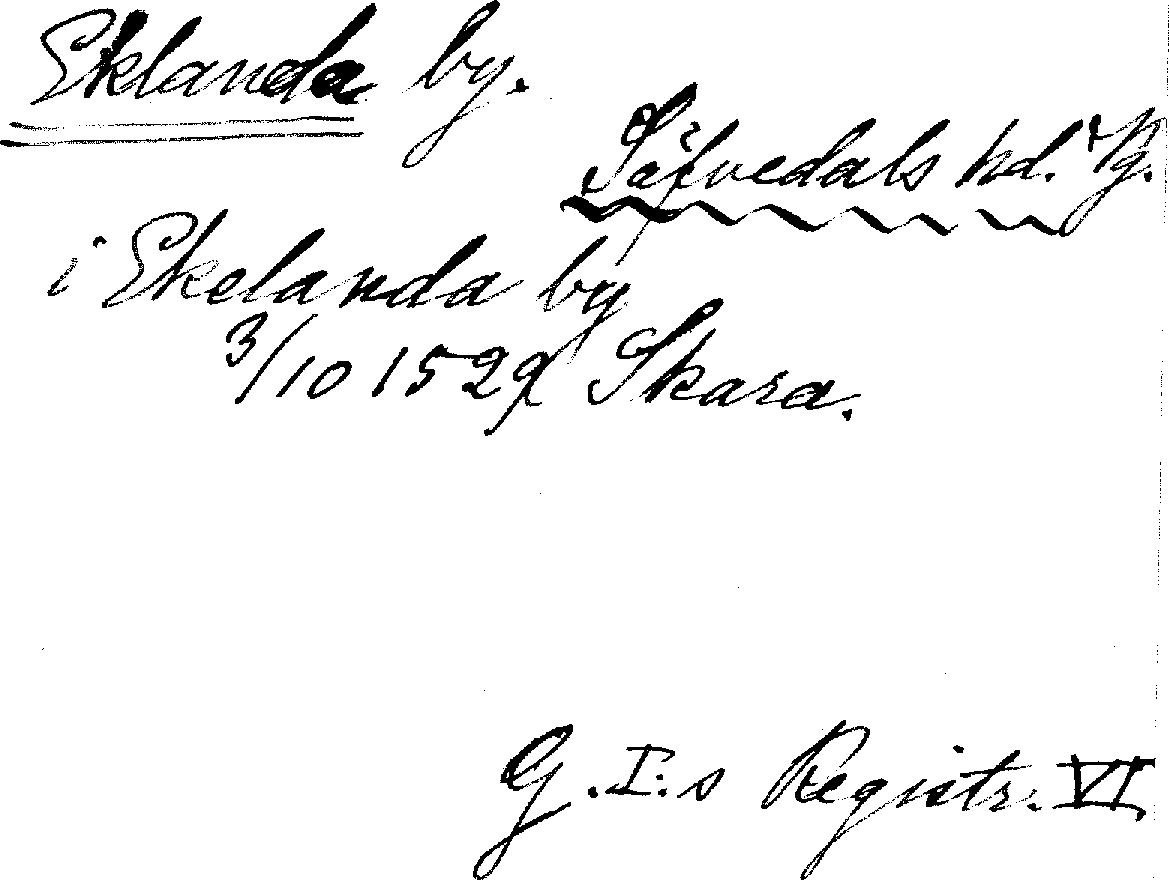 Eklanda by.
Säfvedals hd. Vg.
i Ekelanda by
3/10 1529 Skara.
G. I:s Registr. VI.